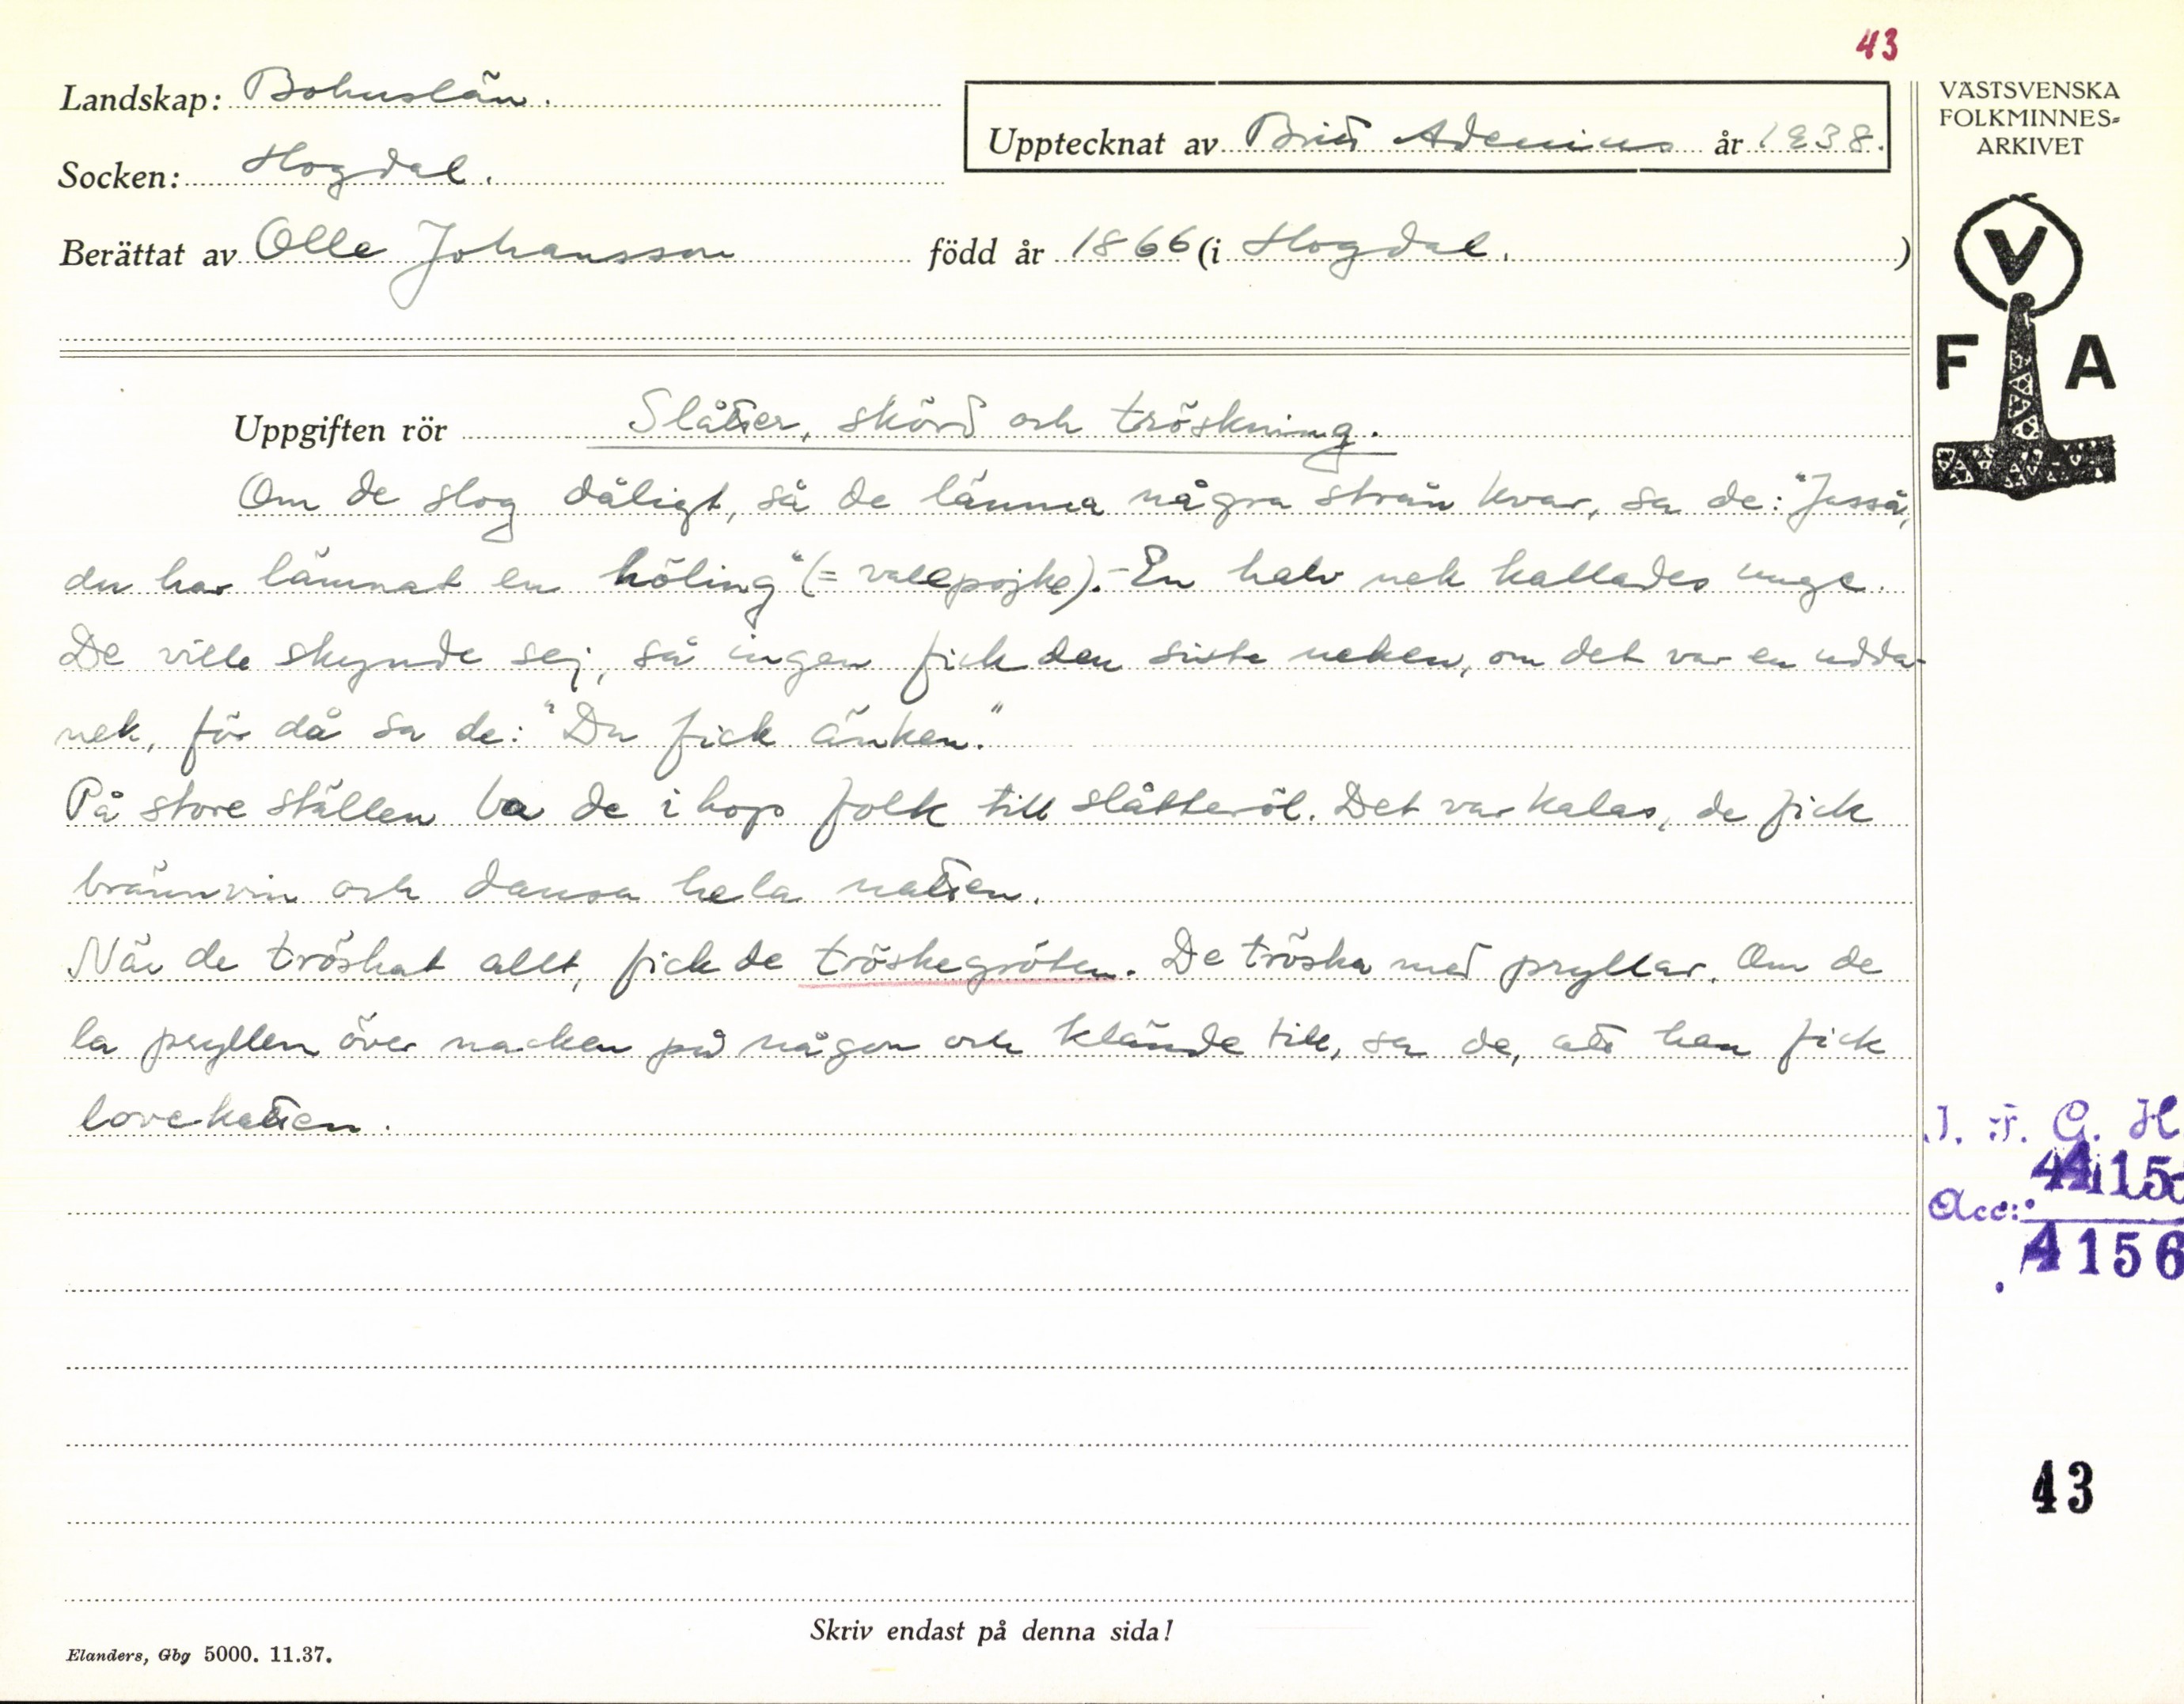 43
Landskap: Bohuslän.
Upptecknat av Britt Ademius år 1938.
Socken: Hogdal.
Berättat av Olle Johansson född år 1866 (i Hogdal. )
VÄSTSVENSKA
FOLKMINNES=
ARKIVET
V
F A
Uppgiften rör Slåtter, skörd och tröskning.
Om de slog dåligt, så de lämna några strån kvar, sa de: "Jasså,
du har lämnat en höling" (= vallpojke). - En halv nek kallades unge.
De ville skynde sej, så ingen fick den siste neken, om det var en udda-
nek, för då sa de: "Du fick änken."
På store ställen ba de i hop folk till slåtteröl. Det var kalas, de fick
brännvin och dansa hela natten.
När de tröskat allt, fick de tröskegröten. De tröska med pryllar. Om de
la pryllen över nacken på någon och klände till, sa de, att han fick
lovekatten.
I. F. G. H
Acc: 4415
4156
43
Skriv endast på denna sida!
Elanders, Gbg 5000. 11.37.